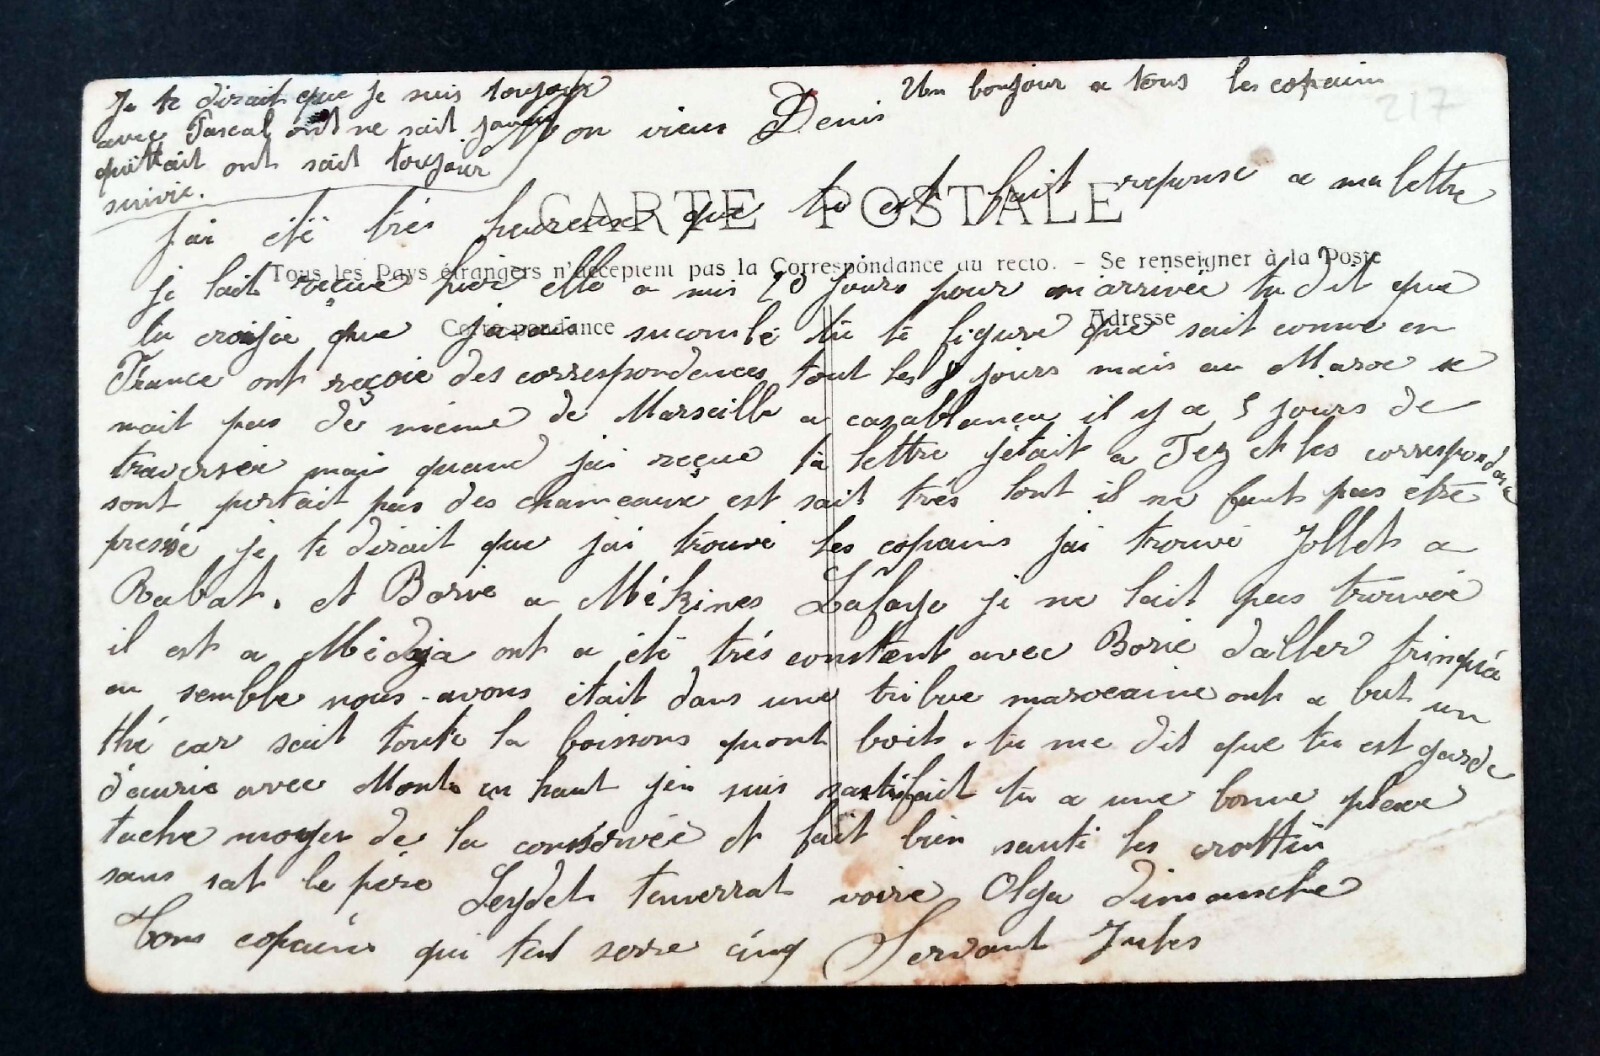 Un bonjour a tous les copains
217
Je te dirait que je suis toujour
avec Pascal ont ne sait jamais
quittait ont sait toujour
suivie.
Mon vieux Denis
CARTE POSTALE
jai eté trés heureuse que tu est fait reponse a ma lettre
Tous les Pays étrangers n'acceptent pas la Correspondance au recto. – Se renseigner à la Poste
je lait reçue hier elle a mis 20 jours pour en arrivée tu dit que
Correspondance
Adresse
tu croisie que javais sucombé tu te figure que sait comme en
France ont reçoie des correspondences tout les 8 jours mais au Maroc se
nait pas de meme de Marseille a casablanca il y a 5 jours de
traversée mais quand jai reçue ta lettre jetait a Fez et les correspondance
sont portait pas des chameaux est sait trés lont il ne faut pas étre
pressé je te dirait que jai trouvé les copains jai trouvé Jollets a
Rabat. et Borie a Mékines Lafaye je ne lait pas trouvée
il est a Médya ont a été trés contant avec Borie daller trinquée
en semble nous avons était dans une tribue marocaine ont a but un
thé car sait toute la boissons quont boit. tu me dit que tu est garde
décurie avec Mont en haut jen suis sastifait tu a une bonne place
tache moyen de la consérvée et fait bien sauté les crottin
sans sat le pére Leydet tenverrat voire Olga dimanche
Tons copains qui tent serre cinq Servant Jules